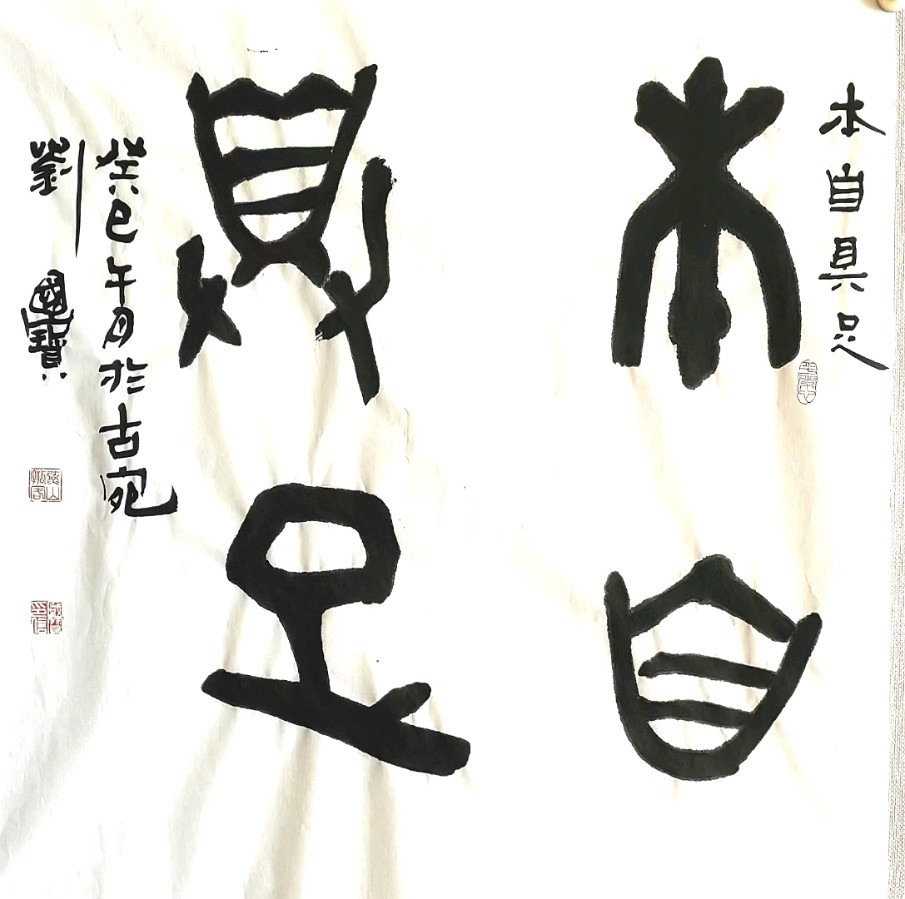 本自具足
本自
具足
癸巳午月於古宛
劉國寶